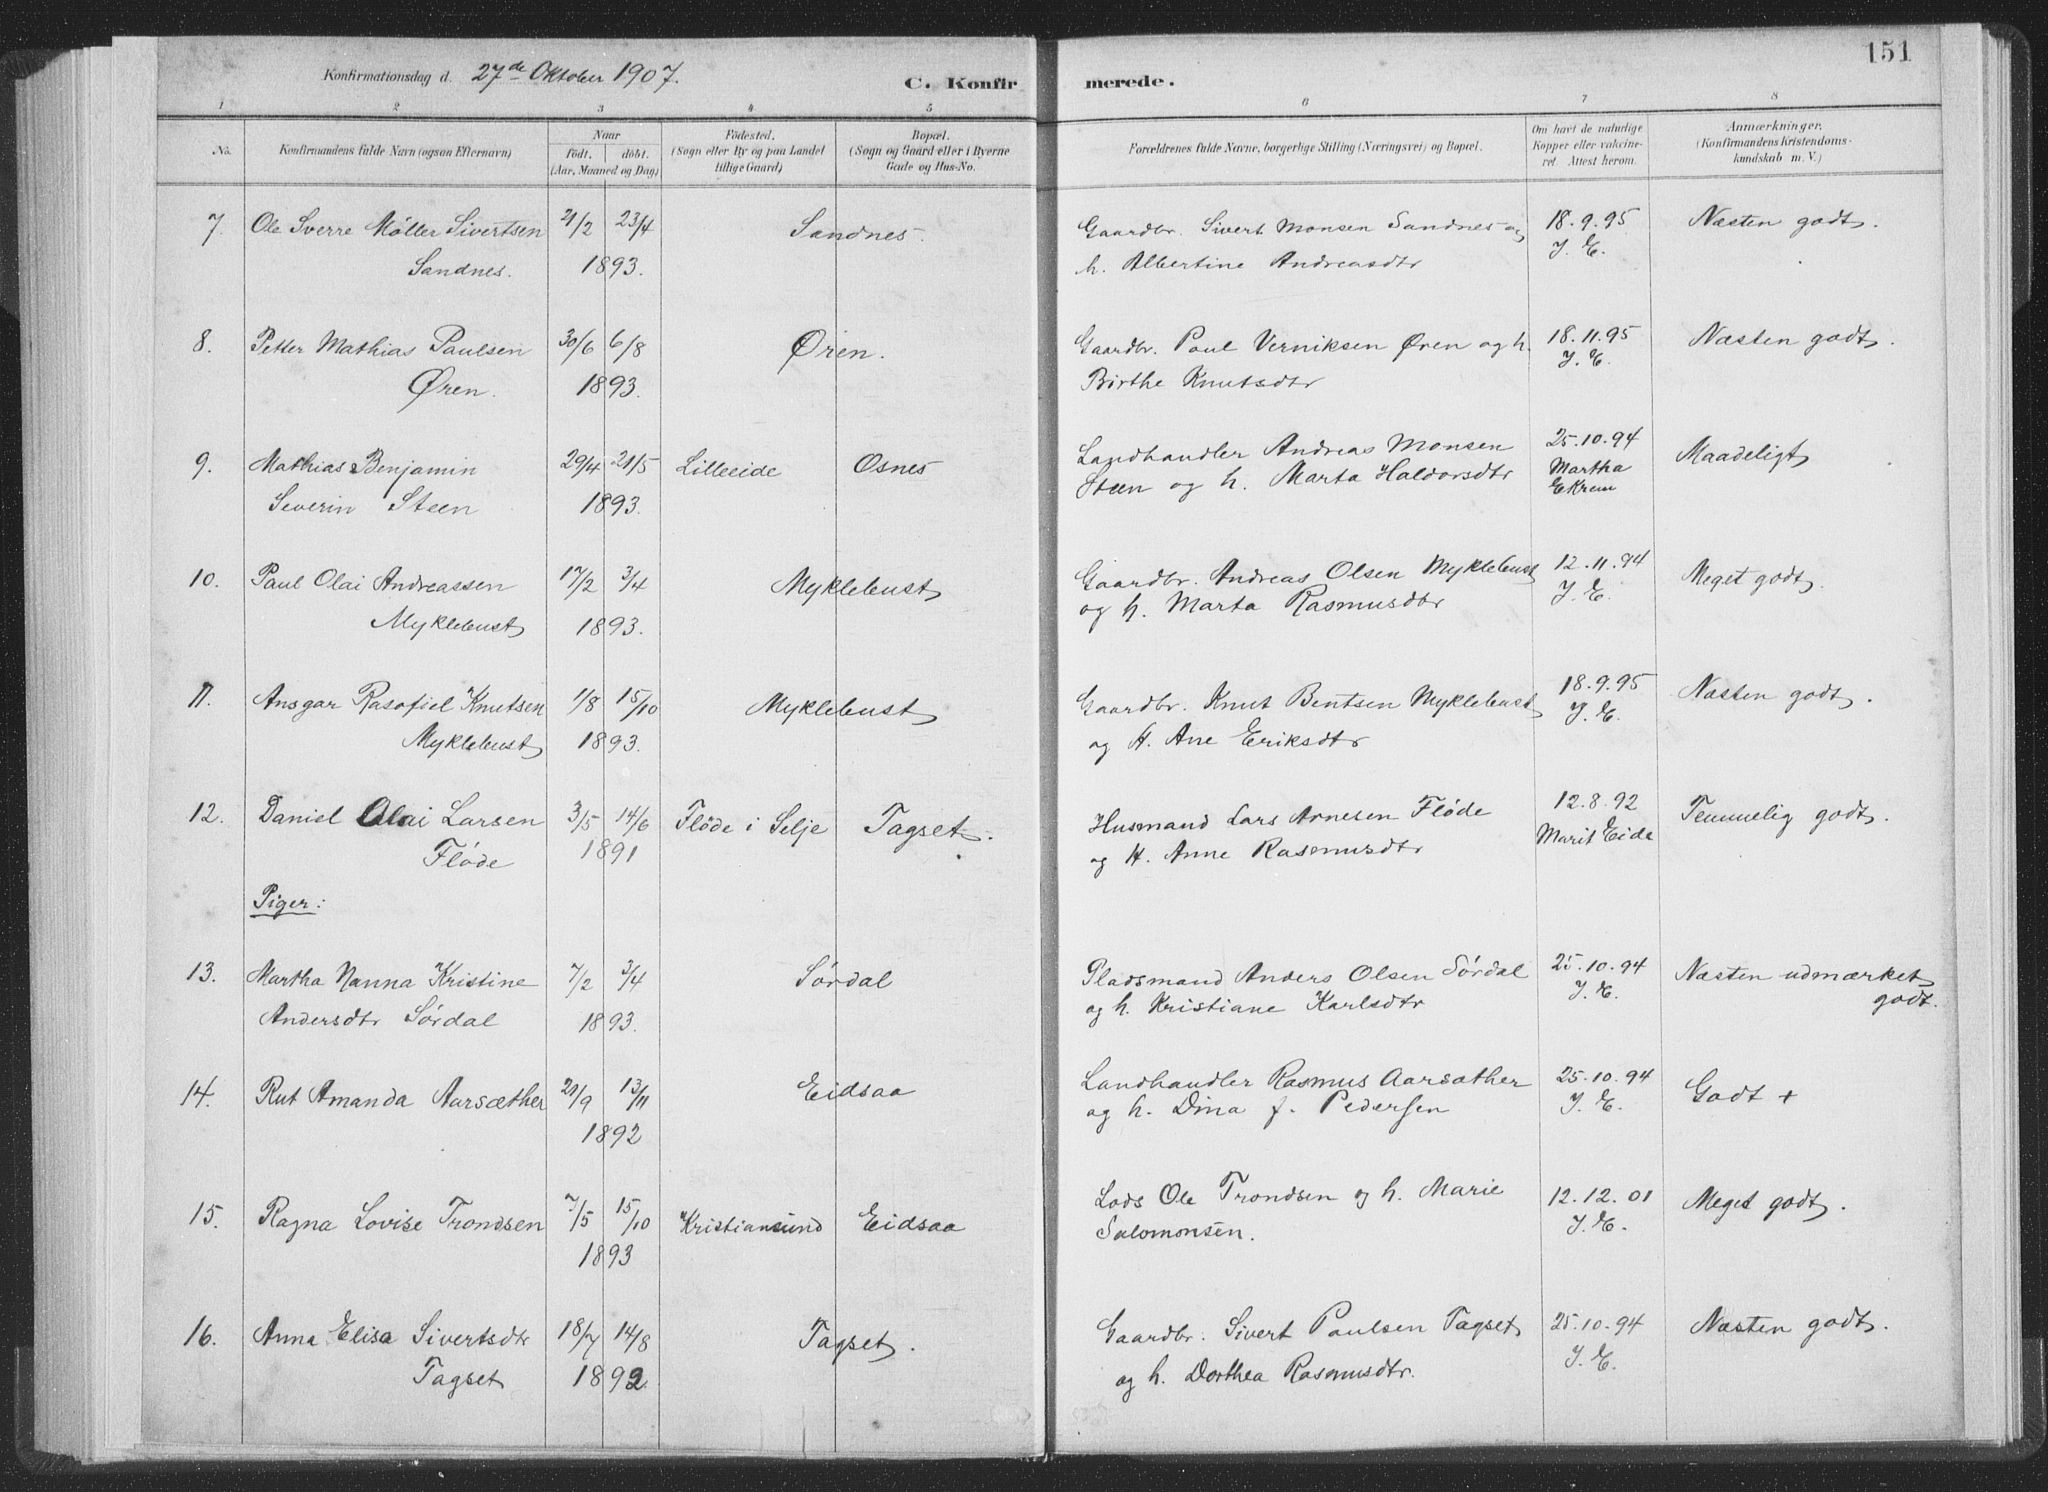 151
Konfirmationsdag d. 27de Oktober 1907.
C. Konfirmerede.
1 2 3 4 5 6 7 8
No.
Konfirmandens fulde Navn (ogsaa Efternavn)
Naar
født, døbt.
(Aar, Maaned og Dag)
Fødested.
(Sogn eller By og paa Landet
tillige Gaard)
Bopæl.
(Sogn og Gaard eller i Byerne
Gade og Hus-No.
Forældrenes fulde Navne, borgerlige Stilling (Næringsvei) og Bopæl.
Om havt de naturlige
Kopper eller vakcine-
ret. Attest herom.
Anmærkninger.
(Konfirmandens Kristendoms-
kundskab m. V.)
7. Ole Sverre Möller Sivertsen 21/2 23/4 Sandnes. Gaardbr. Sivert Monsen Sandnes og 18.9.95 Næsten godt.
Sandnes. 1893. h. Albertine Andreasdtr J. E.
8. Petter Mathias Paulsen 30/6 6/8 Øren. Gaardbr. Paul Verniksen Øren og h. 18.11.95 Næsten godt.
Øren. 1893. Birthe Knutsdtr J. E.
9. Mathias Benjamin 29/4 21/5 Lilleeide Osnes Landhandler Andreas Monsen 25.10.94 Maadeligt
Severin Steen 1893. Steen og h. Marta Haldorsdtr Martha
Ekrem
10. Paul Olai Andreassen 17/2 3/4 Myklebust Gaardbr. Andreas Olsen Myklebust 12.11.94 Meget godt.
Myklebust 1893. og h. Marta Rasmusdtr J. E.
11. Ansgar Rasofiel Knutsen 1/8 15/10 Myklebust Gaardbr. Knut Bentsen Myklebust 18.9.95 Næsten godt.
Myklebust 1893. og H. Ane Eriksdtr J. E.
12. Daniel Olai Larsen 3/5 14/6 Flöde i Selje Tagset. Husmand Lars Arnesen Flöde 12.8.92 Temmelig godt.
Flöde 1891 og H. Anne Rasmusdtr Marit Eide
Piger:
13. Martha Nanna Kristine 7/2 3/4 Sördal Pladsmand Anders Olsen Sördal 25.10.94 Næsten udmærket
Andersdtr Sördal 1893. og h. Kristiane Karlsdtr J. E. godt.
14. Rut Amanda Aarsæther 21/9 13/11 Eidsaa Landhandler Rasmus Aarsæther 25.10.94 Godt +
1892 og h. Dina f. Pedersen J. E.
15. Ragna Lovise Trondsen 7/5 15/10 Kristiansund Eidsaa Lods Ole Trondsen og h. Marie 12.12.01 Meget godt.
1893 Salomonsen. J. E.
16. Anna Elisa Sivertsdtr 18/7 14/8 Tagset. Gaardbr. Sivert Paulsen Tagset 25.10.94 Næsten godt.
Tagset 1892. og h. Dorthea Rasmusdtr. J. E.